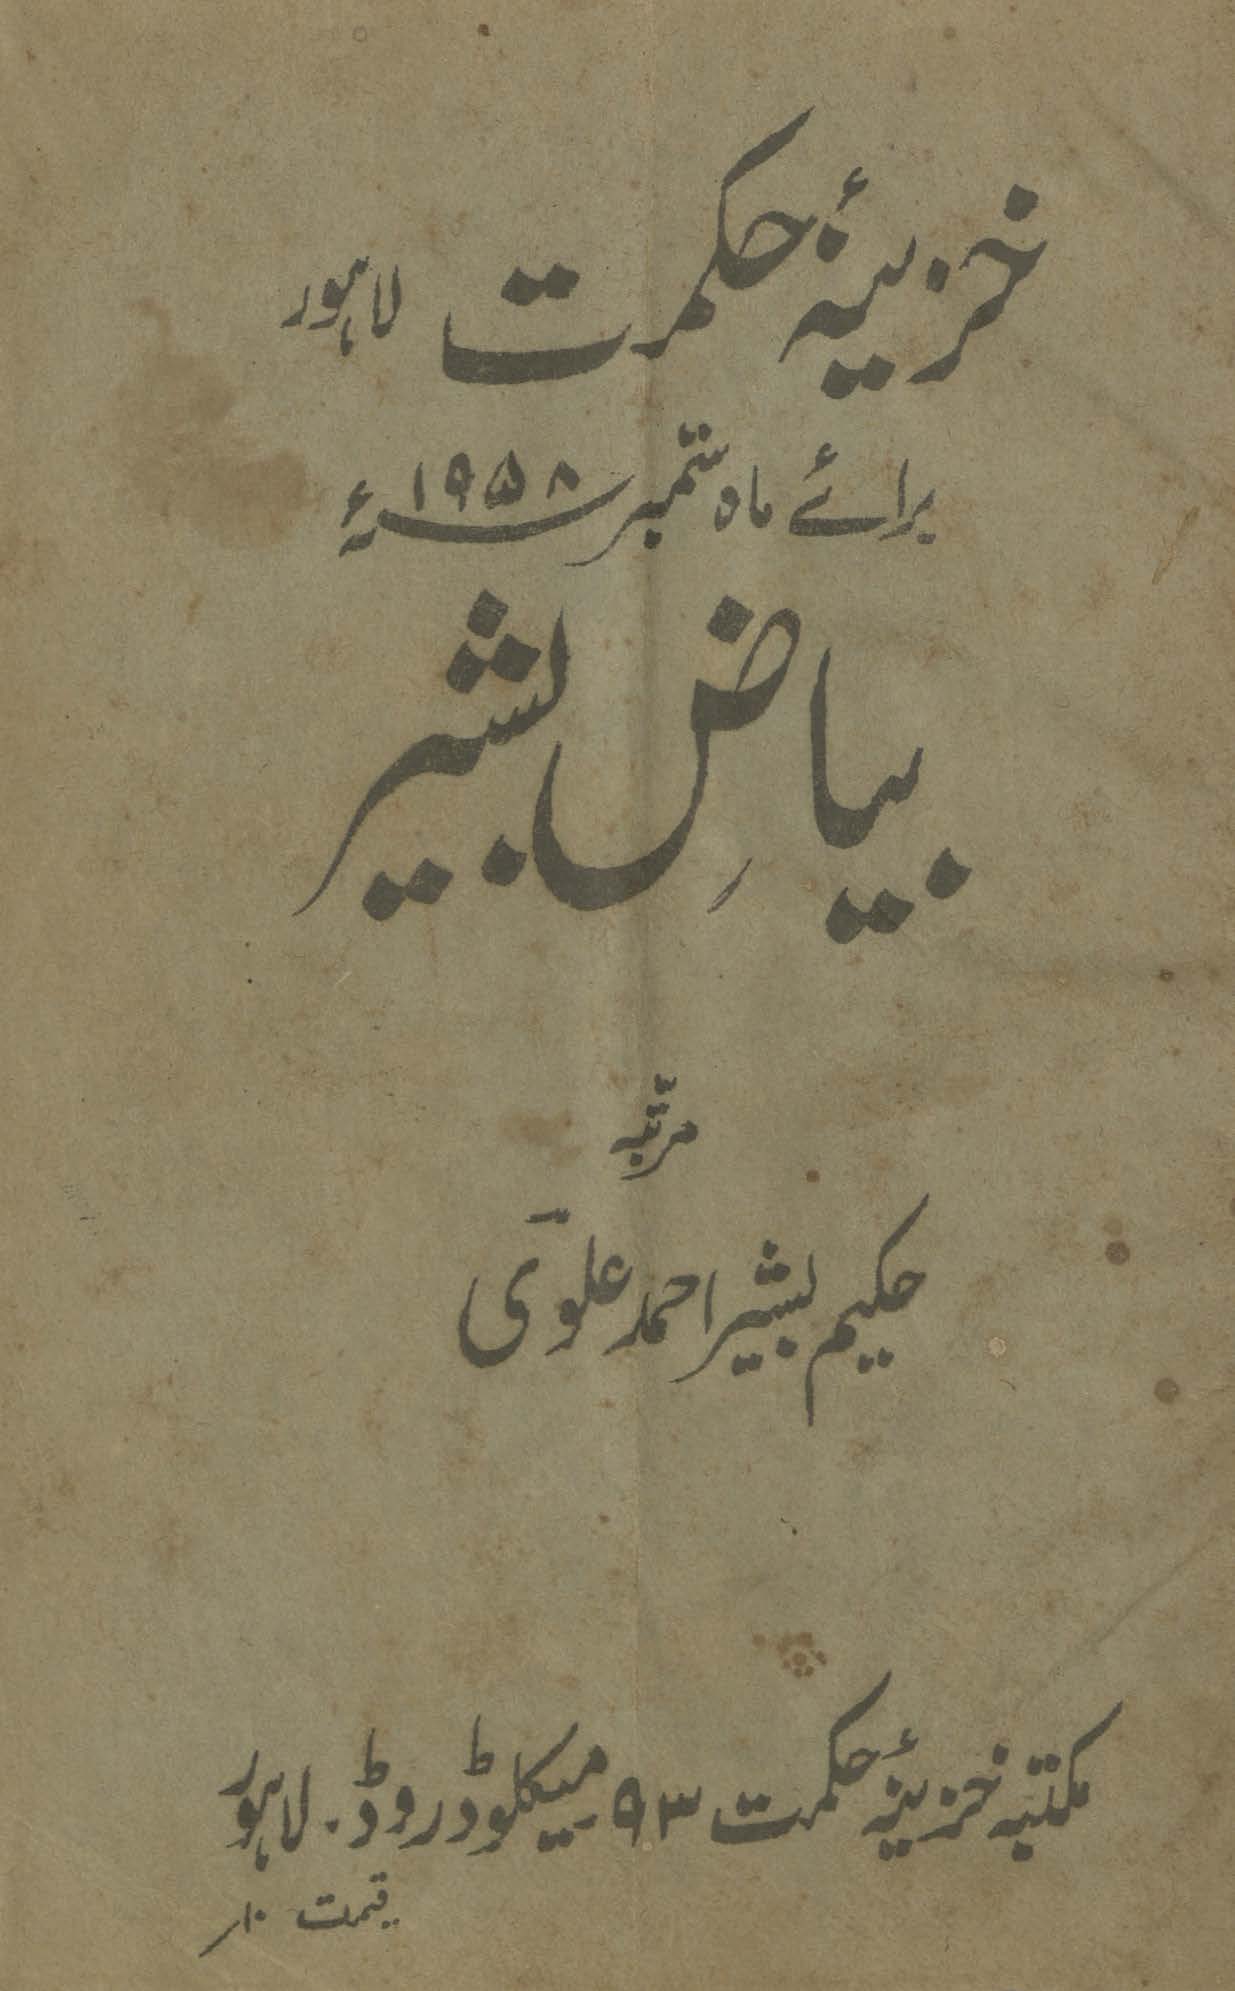 خزینۂ حکمت لاہور
برائے ماہ ستمبر ۱۹۵۸ء
بیاضِ بشیر
مرتّبہ
حکیم بشیر احمد علوی
مکتبہ خزینۂ حکمت ۹۳ میکلوڈ روڈ. لاہور
قیمت ۱۰ر